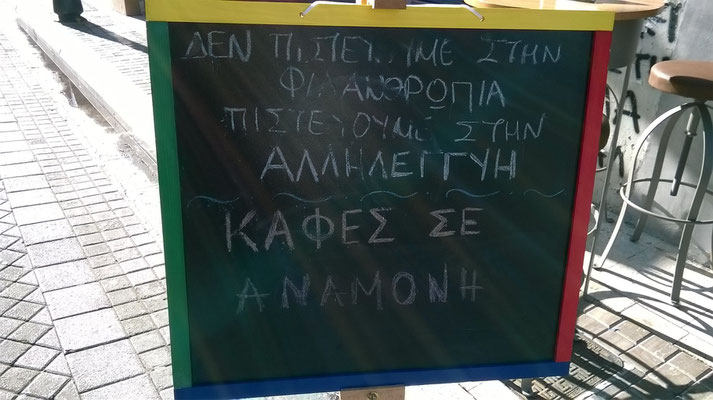 ΔΕΝ ΠΙΣΤΕΥΟΥΜΕ ΣΤΗΝ
ΦΙΛΑΝΘΡΩΠΙΑ
ΠΙΣΤΕΥΟΥΜΕ ΣΤΗΝ
ΑΛΛΗΛΕΓΓΥΗ
ΚΑΦΕΣ ΣΕ
ΑΝΑΜΟΝΗ